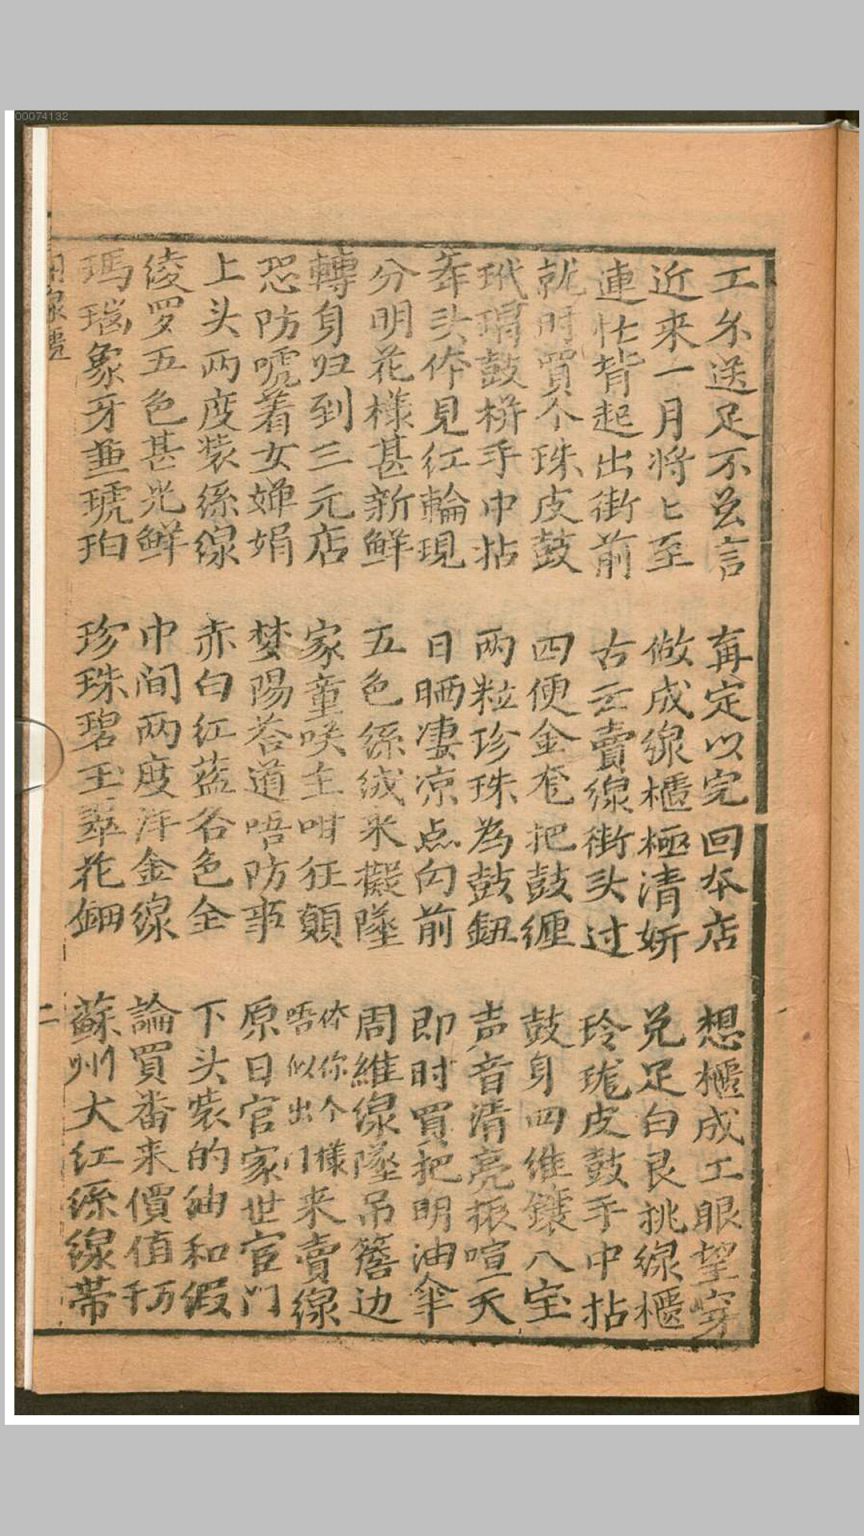 00074132
工尒送足不並言　再定以完回夲店　想櫃成工眼望穿
近来一月将匕至　做成線櫃極清妍　兑足白艮挑線櫃
連忙背起出街前　古云賣線街头过　玲珑皮鼓手中拈
就时買个珠皮鼓　四便金把鼓纒　鼓身四维鑲八宝
玳瑁鼓手中拈　两粒珍珠為鼓鈕　声音清亮振喧天
头伓見红輪現　日晒凄凉点向前　即时買把明油傘
分明花樣甚新鲜　五色絲絨来擬墜　周維線墜吊簷边
轉身归到三元店　家童咲主咁狂顛　伓你个樣唔似出门来賣線
恐防唬着女婵娟　梦陽荅道唔防事　原日官家世宦门
上头两度装絲線　赤白红蓝各色全　下头裝的紬和假
绫罗五色甚光鲜　中间两度洋金線　論買番来價值千万
瑪瑙象牙並琥珀　珍珠碧玉翠花鈿　蘇州大红絲線带
線櫃　二